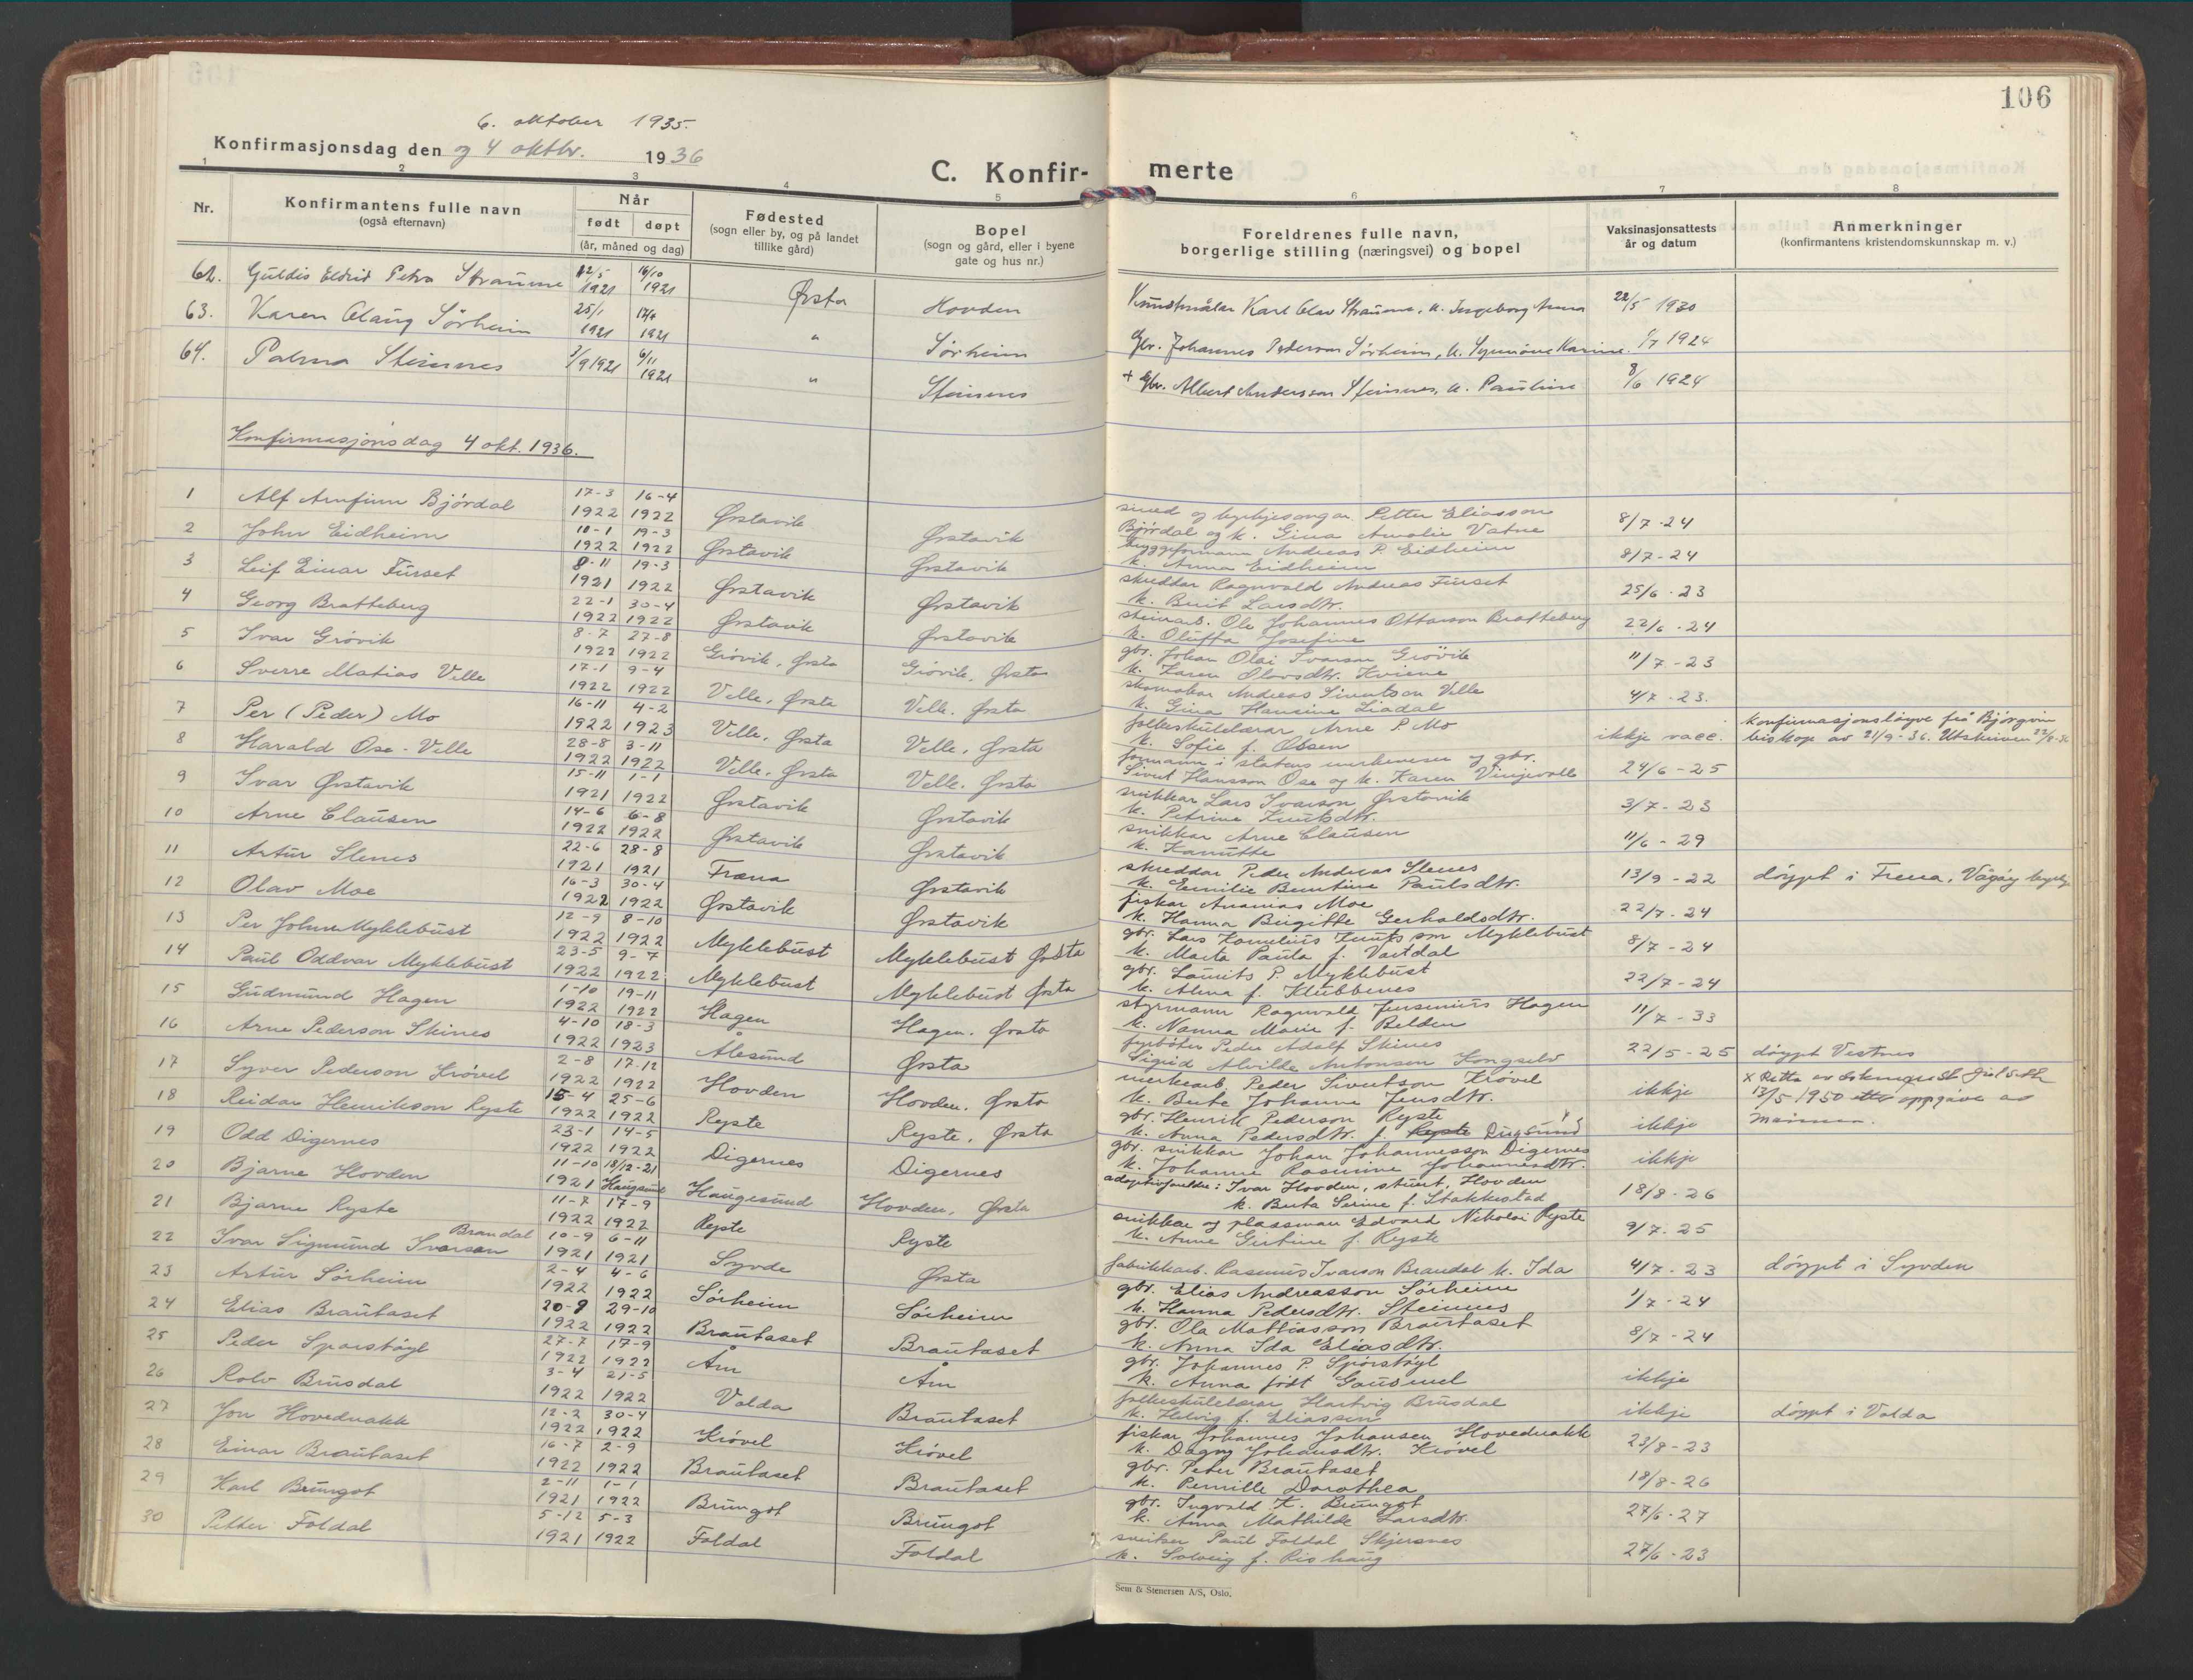 106
6. oktober 1935.
Konfirmasjonsdag den og 4 oktbr. 1936
C. Konfir- merte
1 2 3 4 5 6 7 8
Nr. Konfirmantens fulle navn (også efternavn) Når født døpt (år, måned og dag) Fødested (sogn eller by, og på landet tillike gård) Bopel (sogn og gård, eller i byene gate og hus nr.) Foreldrenes fulle navn, borgerlige stilling (næringsvei) og bopel Vaksinasjonsattests år og datum Anmerkninger (konfirmantens kristendomskunnskap m. v.)
62. Guldis Eldrid Petra Straume 12/5 1921 16/10 1921 Ørsta Hovden Kunstmålar Karl Olav Straume, k. Ingeborg Anna 22/5 1930
63. Karen Olaug Sørheim 25/1 1921 1921 " Sørheim Gbr. Johannes Pederson Sørheim, k. Synnöve Karine. 1/7 1924
64. Palma Steinnes 3/9 1921 6/11 1921 " Steinnes + Gbr. Albert Andersson Steinnes, k. Pauline 8/6 1924
Konfirmasjonsdag 4 okt. 1936.
1 Alf Arnfinn Bjørdal 17-3 1922 16-4 1922 Ørstavik Ørstavik smed og kyrkjesongar Petter Eliasson Bjørdal og k. Gina Amalie Vatne 8/7-24
2 John Eidheim 10-1 1922 19-3 1922 Ørstavik Ørstavik bryggeformann Andreas P. Eidheim k. Anna Eidheim 8/7-24
3 Leif Einar Furset 8-11 1921 19-3 1922 Ørstavik Ørstavik skreddar Ragnvald Andreas Furset k. Berit Larsdtr. 25/6-23
4 Georg Bratteberg 22-1 1922 30-4 1922 Ørstavik Ørstavik steinarb. Ole Johannes Ottarson Bratteberg k. Oluffa Josefine 22/6-24
5 Ivar Grøvik 8-7 1922 27-8 1922 Grøvik, Ørsta Grøvik, Ørsta gbr. Johan Olai Ivarson Grøvik k. Karen Olavsdtr. Kviene 11/7-23
6 Sverre Matias Velle 17-1 1922 9-4 1922 Velle, Ørsta Velle. Ørsta skomakar Andreas Sivertson Velle k. Gina Hansine Liadal 4/7-23.
7 Per (Peder) Mo 16-11 1922 4-2 1923 Velle, Ørsta Velle, Ørsta folkeskulelærar Arne P. Mo k. Sofie f. Olsen ikkje vacc. konfirmasjonsløyve frå Bjørgvin biskop av 21/9-36.
8 Harald Ose-Velle 28-8 1922 3-11 1922 Velle, Ørsta Velle. Ørsta formann i statens merkeneser og gbr. Sivert Hansson Ose og k. Karen Vinjevoll 24/6-25
9 Ivar Ørstavik 15-11 1921 1-1 1922 Ørstavik Ørstavik snikkar Lars Ivarson Ørstavik k. Petrine Knutsdtr. 3/7-23
10 Arne Clausen 14-6 1922 6-8 1922 Ørstavik Ørstavik snikkar Arne Clausen k. Kanutte 11/6-29
11 Artur Slenes 22-6 1921 28-8 1921 Fræna Ørstavik skreddar Peder Andreas Slenes k. Emilie Berntine Paulsdtr. 13/9-22 døypt i Frena, Vågøy kyrkje
12 Olav Moe 16-3 1922 30-4 1922 Ørstavik Ørstavik fiskar Ananias Moe k. Hanna Birgitte Gerhaldsdtr. 22/7-24
13 Per Johan Myklebust 12-9 1922 8-10 1922 Myklebust Myklebust Ørsta gbr. Lars Kornelius Knutsson Myklebust k. Marta Paula f. Vartdal 8/7-24
14 Paul Oddvar Myklebust 23-5 1922 9-7 1922 Myklebust Myklebust Ørsta gbr. Laurits P. Myklebust k. Alma f. Klubbenes 22/7-24
15 Gudmund Hagen 1-10 1922 19-11 1922 Hagen Hagen. Ørsta styrmann Ragnvald Jensenius Hagen k. Nanna Marie f. Belden 11/7-33
16 Arne Pederson Skines 4-10 1922 18-3 1923 Ålesund Ørsta fyrbøter Peder Adolf Skines Sigrid Alvilde Antonsen Kongselv 22/5-25 døypt Vestnes
17 Syver Pederson Krøvel 2-8 1922 17-12 1922 Hovden Hovden. Ørsta merkearb. Peder Sivertson Krøvel k. Berte Johanne Jensdtr. ikkje x Retta av 13/5 1950 etter oppgåve av
18 Reidar Henrikson Ryste 15-4 1922 25-6 1922 Ryste Ryste, Ørsta gbr. Henrik Pederson Ryste k. Anna Pedersdtr. f. Ryste ikkje
19 Odd Digernes 23-1 1922 14-5 1922 Digernes Digernes gbr. snikkar Johan Johannesson Digernes k. Johanne Rasmine Johannesdtr. ikkje
20 Bjarne Hovden 11-10 1921 18/12-21 Haugesund Haugesund Hovden, Ørsta adoptivforeldre: Ivar Hovden, stuert, Hovden k. Berta Serine f. Stakkestad 18/8-26
21 Bjarne Ryste 11-7 1922 17-9 1922 Ryste Ryste snikkar og plassman Edvard Nikolai Ryste k. Anne Girtine f. Ryste 9/7-25
22 Ivar Sigmund Ivarson Brandal 10-9 1921 6-11 1921 Syvde Ørsta fabrikkarb. Rasmus Ivarson Brandal k. Ida 4/7-23 døypt i Syvden
23 Artur Sørheim 2-4 1922 4-6 1922 Sørheim Sørheim gbr. Elias Andreasson Sørheim k. Hanna Pedersdtr. Steinnes 1/7-24
24 Elias Brautaset 20-9 1922 29-10 1922 Brautaset Brautaset gbr. Ola Mattiasson Brautaset k. Anna Ida Eliasdtr. 8/7-24
25 Peder Sporstøyl 27-7 1922 17-9 1922 Åm Åm gbr. Johannes P. Sporstøyl k. Anna født Gausmel ikkje
26 Rolv Brusdal 3-4 1922 21-5 1922 Volda Brautaset folkeskulelærar Hartvig Brusdal k. Helvig f. Eliassen ikkje døypt i Volda
27 Jon Hovednakk 12-2 1922 30-4 1922 Krøvel Krøvel fiskar Johannes Johansen Hovednakk k. Dagny Johansdtr. Krøvel 23/8-23
28 Einar Brautaset 16-7 1922 2-9 1922 Brautaset Brautaset gbr. Peter Brautaset k. Pernille Dorothea 18/8-26
29 Karl Brungot 2-11 1921 1-1 1922 Brungot Brungot gbr. Ingvald K. Brungot k. Anna Mathilde Larsdtr. 27/6-27
30 Petter Foldal 5-12 1921 5-3 1922 Foldal Foldal snikar Paul Foldal Skjersnes k. Solveig f. Rishaug 27/6-23
Sem & Stenersen A/S, Oslo.